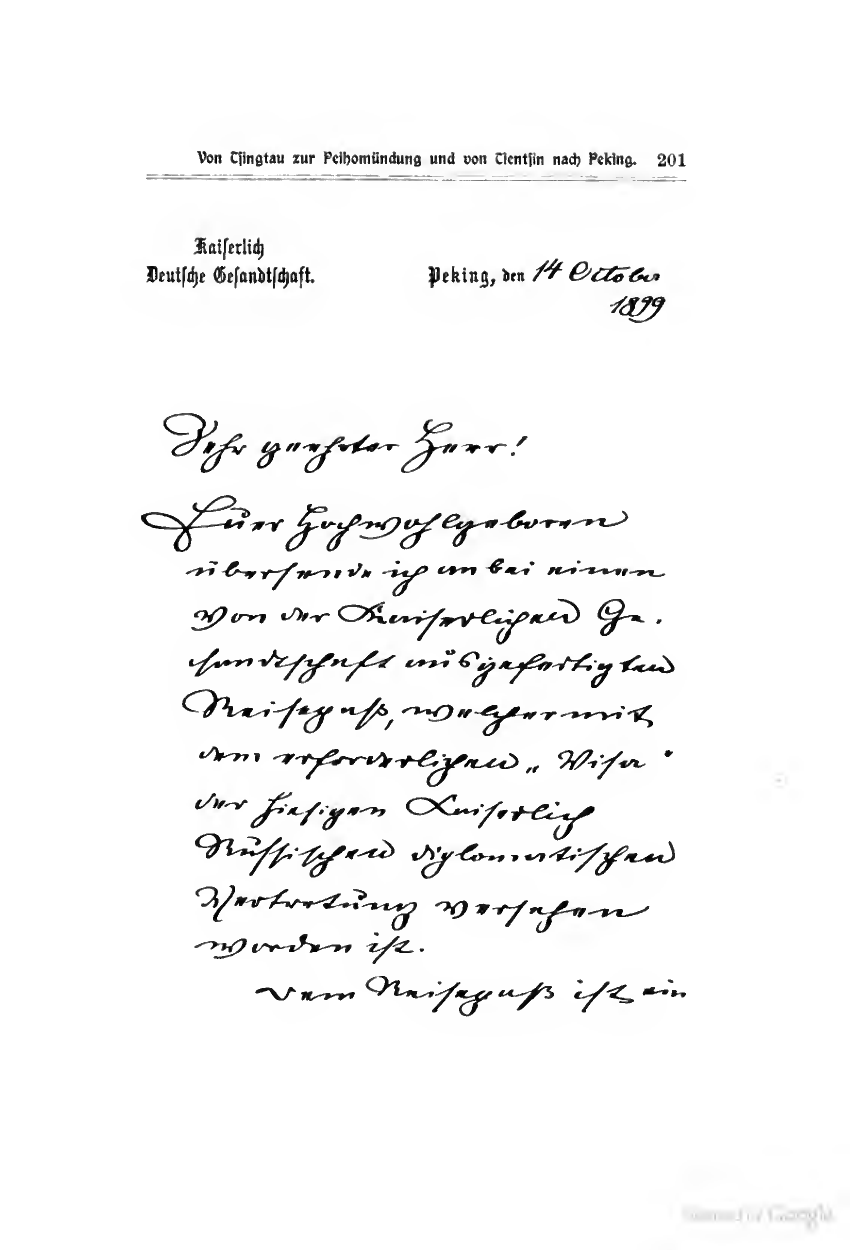 Von Tsingtau zur Peihomündung und von Tientsin nach Peking. 201
Kaiserlich
Deutsche Gesandtschaft.
Peking, den 14 October
1899
Sehr geehrter Herr!
Euer Hochwohlgeboren
übersende ich anbei einen
von der Kaiserlichen Ge-
sandtschaft ausgefertigten
Reisepaß, welcher mit
dem erforderlichen „Visa"
der hiesigen Kaiserlich
Russischen diplomatischen
Vertretung versehen
worden ist.
Dem Reisepaß ist ein
Digitized by Google